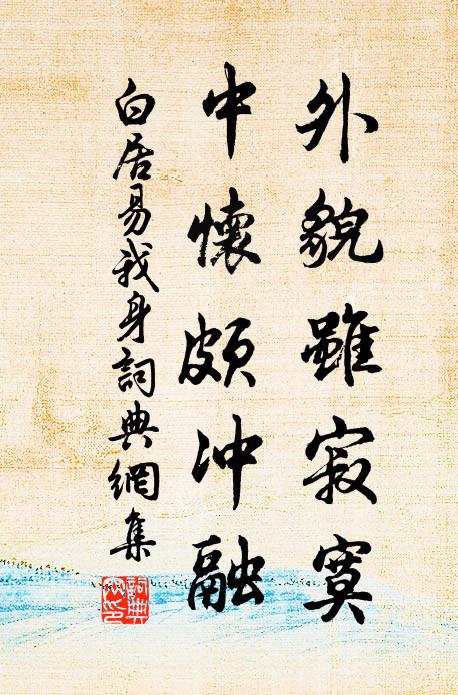 外貌雖寂寞
中懷頗沖融
白居易我身詞典網集